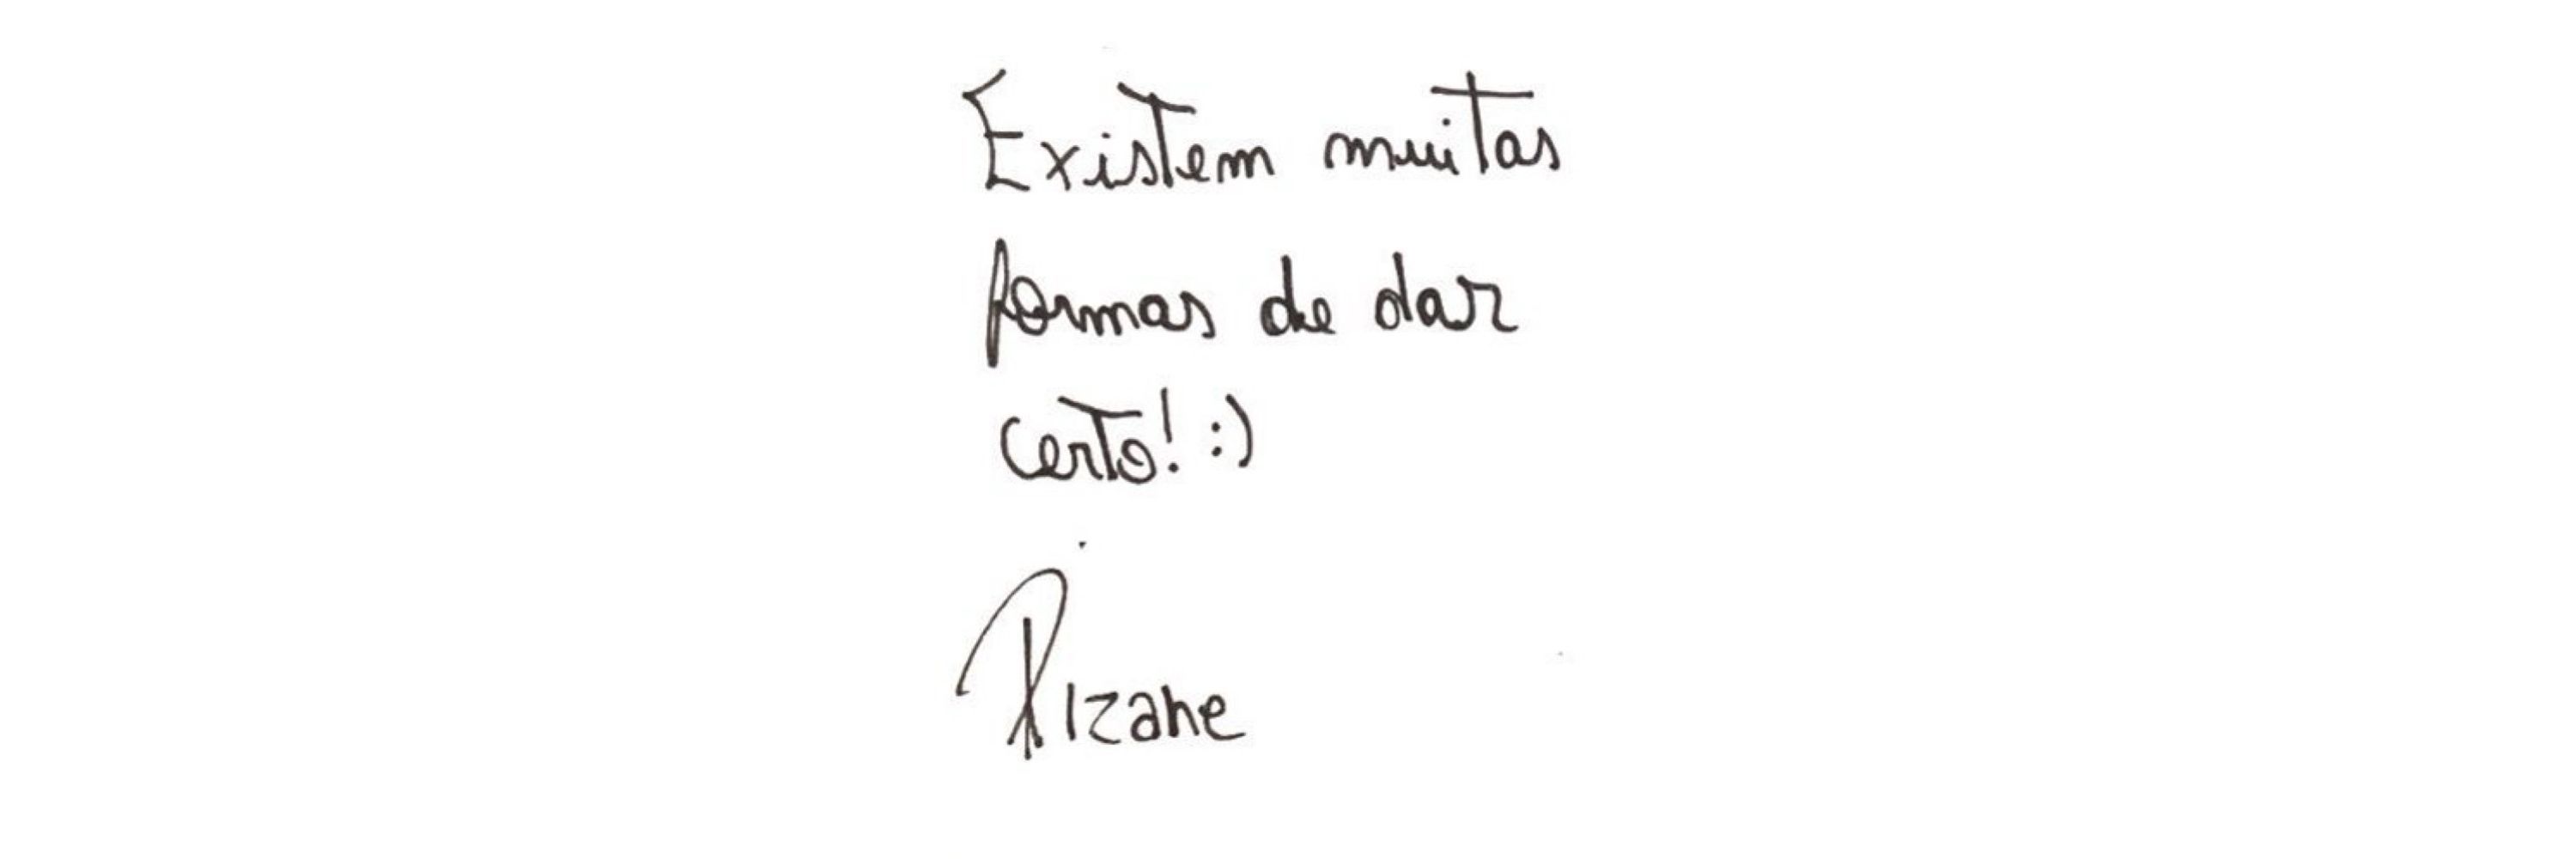 Existem muitas
formas de dar
certo! :)
Rizane